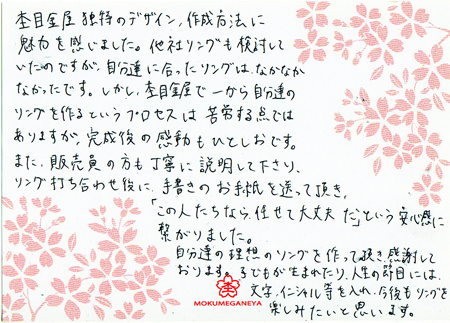 杢目金屋独特のデザイン,作成方法に
魅力を感じました。他社リングも検討して
いたのですが,自分達に合ったリングは,なかなか
なかったです。しかし,杢目金屋で一から自分達の
リングを作るというプロセスは苦労する点では
ありますが,完成後の感動もひとしおです。
また,販売員の方も丁寧に説明して下さり,
リング打ち合わせ後に,手書きのお手紙を送って頂き,
「この人たちなら,任せて大丈夫だ」という安心感に
繋がりました。
自分達の理想のリングを作って頂き,感謝して
おります。子どもが生まれたり,人生の節目には,
文字,イニシャル等を入れ,今後もリングを
楽しみたいと思います。
MOKUMEGANEYA